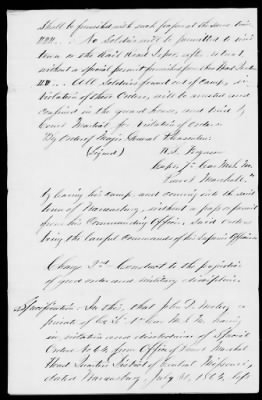 shall be furnished with such passes at the same time
No Soldier will be permitted to visit
town or the Head Quarters, after retreat
without a special permit from these Head Quarters
All Soldiers found out of Camp, in
violation of these Orders, will be arrested
and confined in the guard house, and tried by
Court Martial, for Violation of Orders
By Order of Major General Pleasonton
(Signed)
Capt. 7" Cav M.S.M.
Provost Marshal."
by leaving his Camp and coming into the said
town of Warrensburg, without a pass or permit
from his Commanding Officer, said orders
being the lawful commands of his superior Officers
Charge 2nd Conduct to the prejudice
of good order and military discipline.
Specification: In this, that John D.
private of Co. 1st Cav M.S.M. having
in violation and disobedience of Special
Orders No from Office of Provost Marshal
Head Quarters District of Central Missouri,
dated Warrensburg, July left